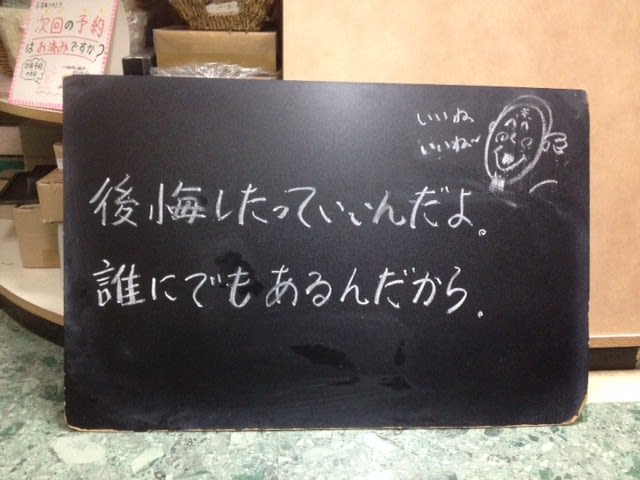 次回の予約
はお済みですか?
いいね
いいね~
後悔したっていいんだよ。
誰にでもあるんだから。